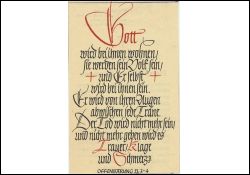 Gott
wird bei ihnen wohnen,
sie werden sein Volk sein,
und Er selbst
wird bei ihnen sein.
Er wird von ihren Augen
abwischen jede Träne.
Der Tod wird nicht mehr sein,
und nicht mehr geben wird es
Trauer, Klage
und Schmerz.
OFFENBARUNG 21, 3-4